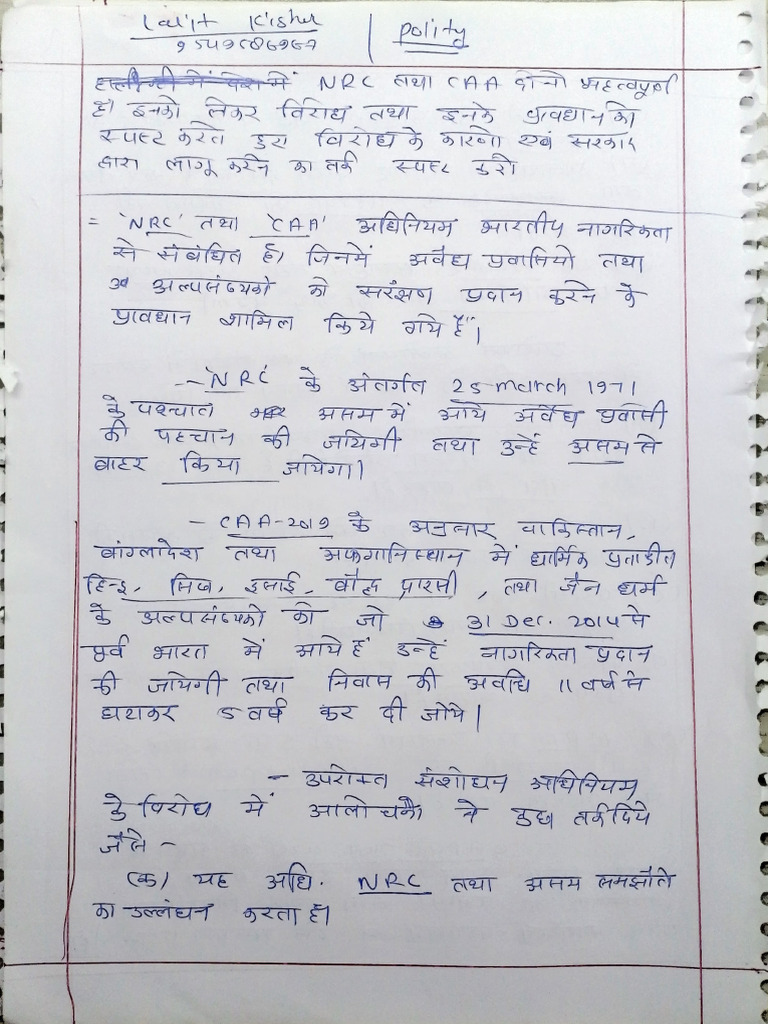 Lalit Kishor | Polity
NRC तथा CAA दोनो महत्वपूर्ण
है। इनको लेकर विरोध तथा इनके प्रावधान को
स्पष्ट करते हुए विरोध के कारणो एवं सरकार
द्वारा लागू करने का तर्क स्पष्ट करो
= 'NRC' तथा 'CAA' अधिनियम भारतीय नागरिकता
से संबंधित है। जिनमें अवैध प्रवासियो तथा
अल्पसंख्यको को सरंक्षण प्रदान करने के
प्रावधान शामिल किये गये हैं"।
- 'NRC' के अंतर्गत 25 march 1971
के पश्चात असम में आये अवैध प्रवासी
की पहचान की जायेगी तथा उन्हें असम से
बाहर किया जायेगा।
- CAA-2019 के अनुसार पाकिस्तान,
बांग्लादेश तथा अफगानिस्थान में धार्मिक प्रताडीत
हिन्दू, सिख, इसाई, बौद्ध पारसी, तथा जैन धर्म
के अल्पसंख्यको को जो 31 Dec. 2014 से
पूर्व भारत में आये हैं उन्हें नागरिकता प्रदान
की जायेगी तथा निवास की अवधि 11 वर्ष से
घटाकर 5 वर्ष कर दी जोये।
- उपरोक्त संशोधन अधिनियम
के विरोध में आलोचको ने कुछ तर्क दिये
जैसे -
(क) यह अधि. NRC तथा असम समझौते
का उल्लंघन करता है।